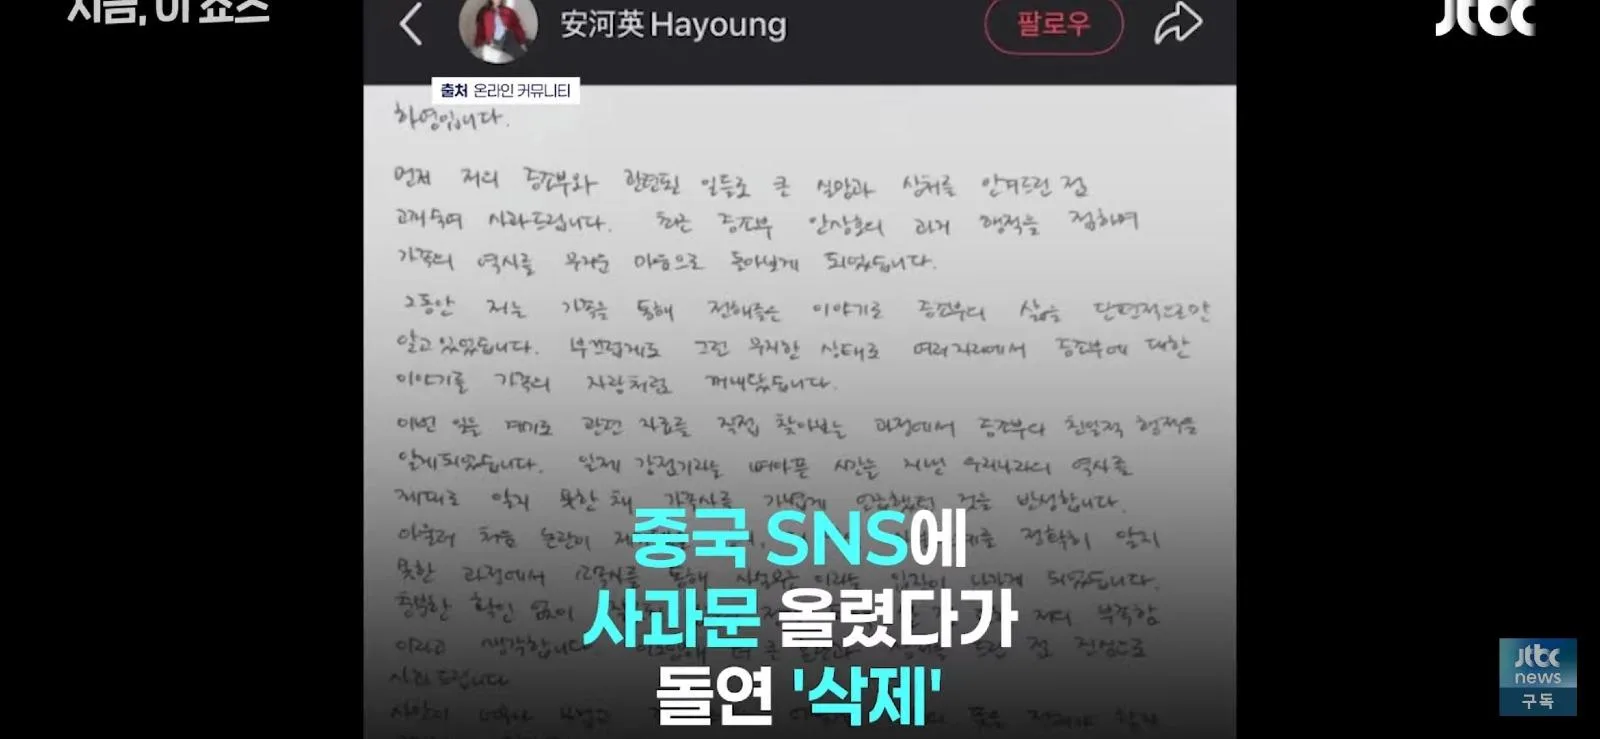 지금, 이 쇼츠
jtbc
安河英Hayoung
팔로우
출처 온라인 커뮤니티
하영입니다.
먼저 저의 증조부와 관련된 일들로 큰 실망과 상처를 안겨드린 점
고개숙여 사과드립니다. 최근 증조부 안상호의 과거 행적을 접하며
가족의 역사를 무거운 마음으로 돌아보게 되었습니다.
그동안 저는 가족을 통해 전해들은 이야기로 증조부의 삶을 단편적으로만
알고있었습니다. 부끄럽게도 그런 무지한 상태로 여러자리에서 증조부에 대한
이야기를 가족의 자랑처럼 꺼내왔습니다.
이번 일을 계기로 관련 자료를 직접 찾아보는 과정에서 증조부의 친일적 행적을
알게되었습니다. 일제 강점기라는 뼈아픈 시간을 지닌 우리나라의 역사를
제대로 알지 못한 채 가족사를 가볍게 언급했던 것을 반성합니다.
아울러 처음 논란이 정확히 알지
못한 과정에서 통해 입장이 나가게 되었습니다.
충분한 확인 없이 저의 부족함
이라고 생각합니다. 드린 점 진심으로
사과드립니다
중국 SNS에
사과문 올렸다가
돌연 '삭제'
jtbc
news
구독